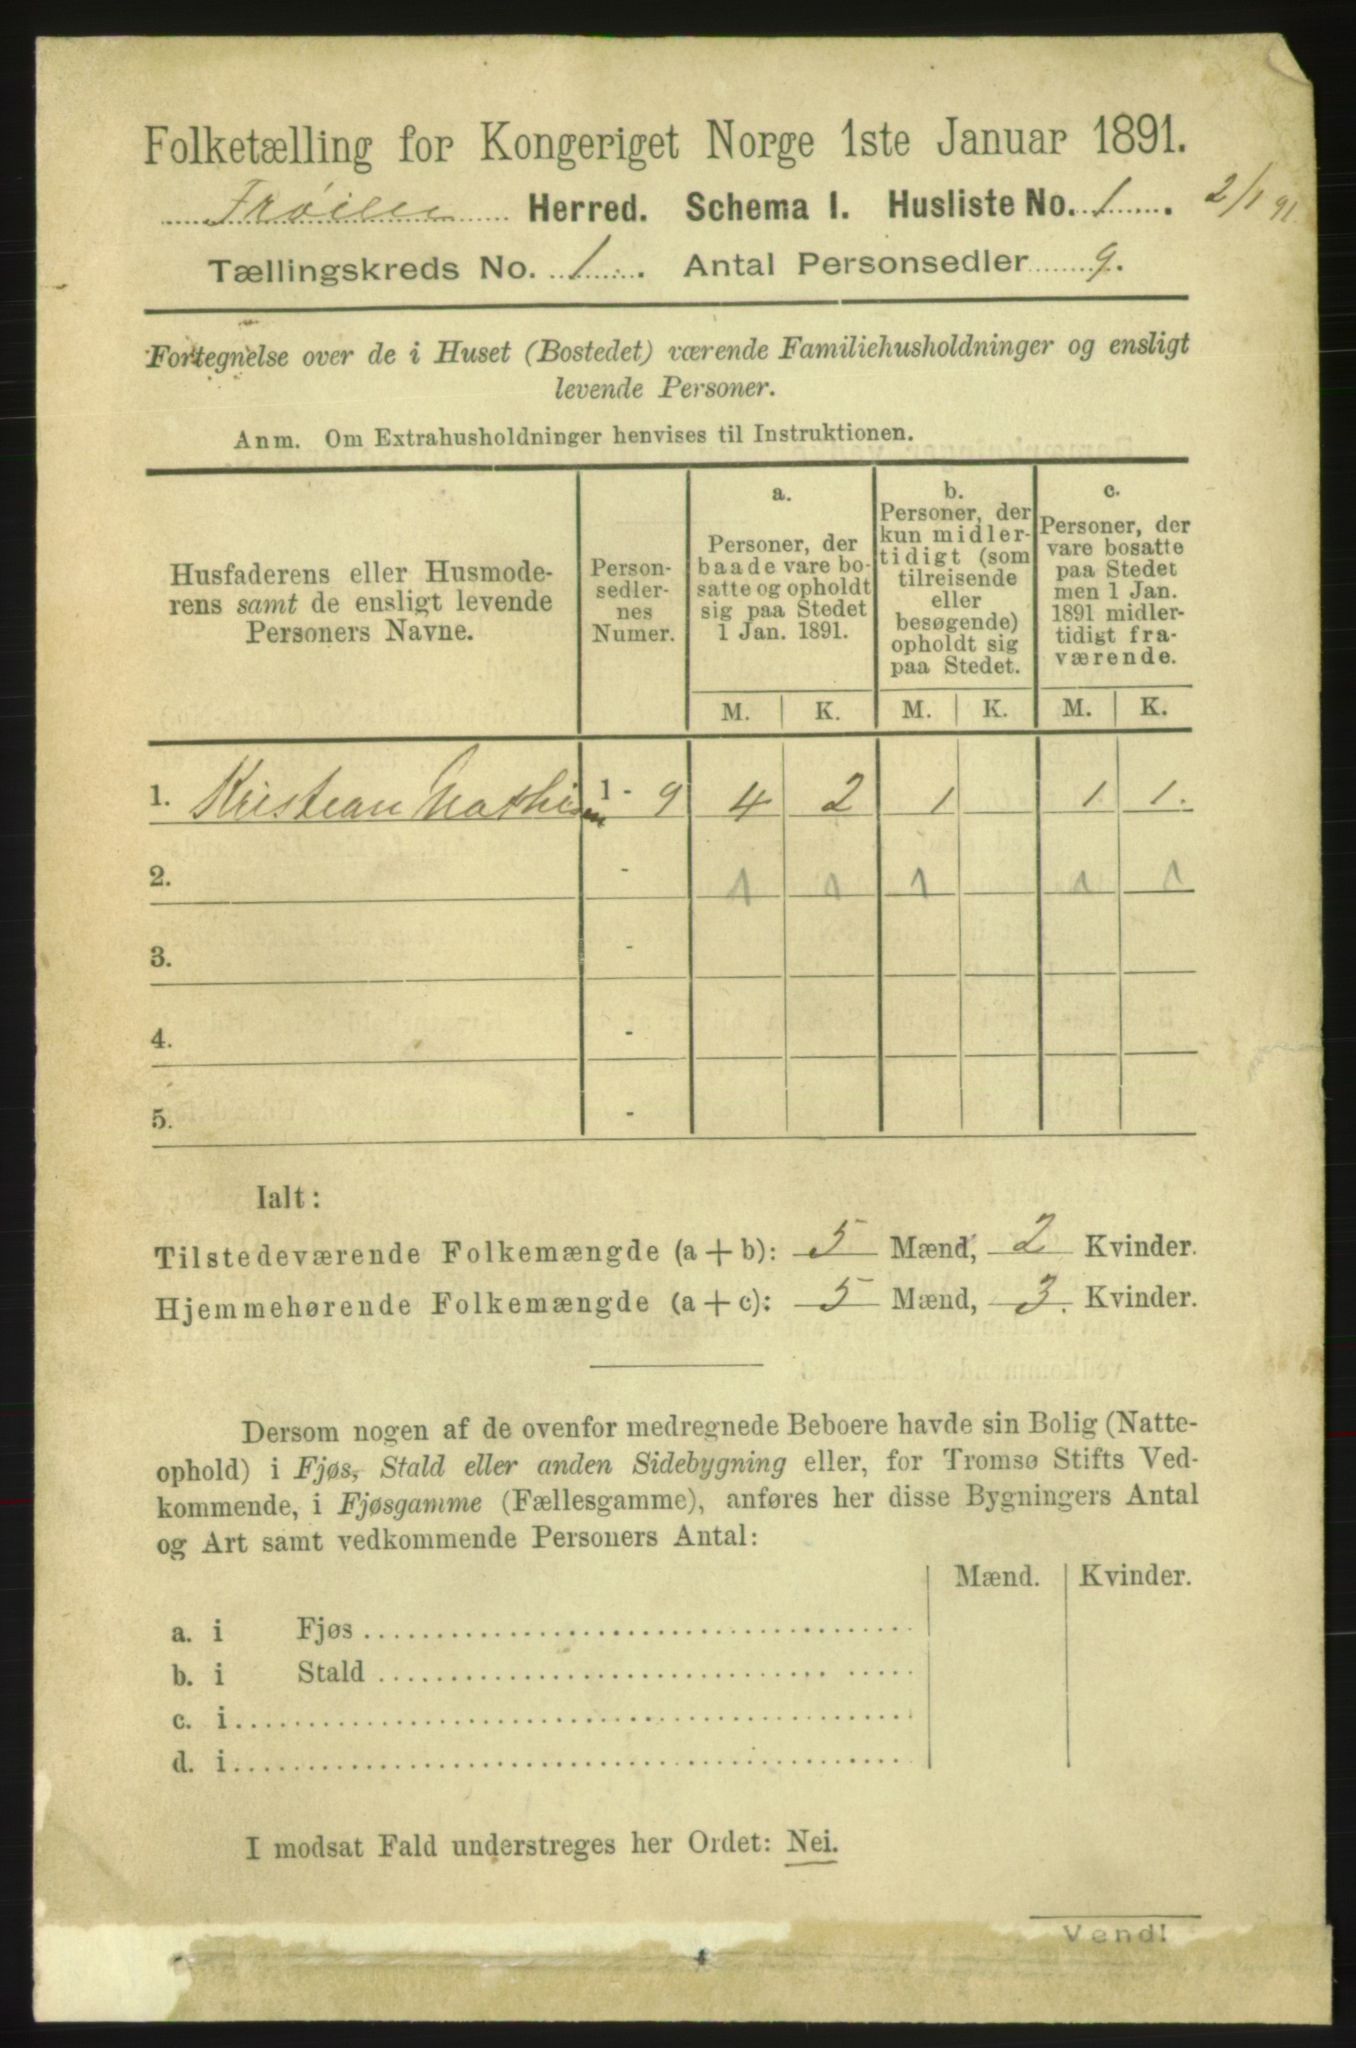 Folketælling for Kongeriget Norge 1ste Januar 1891.
Herred. Schema I. Husliste No. 1. 2/1 91.
Tællingskreds No. 1. Antal Personsedler 9.
Fortegnelse over de i Huset (Bostedet) værende Familiehusholdninger og ensligt
levende Personer.
Anm. Om Extrahusholdninger henvises til Instruktionen.
Husfaderens eller Husmode-
rens samt de ensligt levende
Personers Navne.
Person-
sedler-
nes
Numer.
a.
Personer, der
baade vare bo-
satte og opholdt
sig paa Stedet
1 Jan. 1891.
b.
Personer, der
kun midler-
tidigt (som
tilreisende
eller
besøgende)
opholdt sig
paa Stedet.
c.
Personer, der
vare bosatte
paa Stedet
men 1 Jan.
1891 midler-
tidigt fra-
værende.
M. K. M. K. M. K.
1. Kristian Mathisen 1 - 9 4 2 1 1 1.
2. - 1 1 1 1 1
3. -
4. -
5. -
Ialt:
Tilstedeværende Folkemængde (a + b): 5 Mænd, 2 Kvinder.
Hjemmehørende Folkemængde (a + c): 5 Mænd, 3. Kvinder.
Dersom nogen af de ovenfor medregnede Beboere havde sin Bolig (Natte-
ophold) i Fjøs, Stald eller anden Sidebygning eller, for Tromsø Stifts Ved-
kommende, i Fjøsgamme (Fællesgamme), anføres her disse Bygningers Antal
og Art samt vedkommende Personers Antal:
Mænd. Kvinder.
a. i Fjøs
b. i Stald
c. i
d. i
I modsat Fald understreges her Ordet: Nei.
Vend!